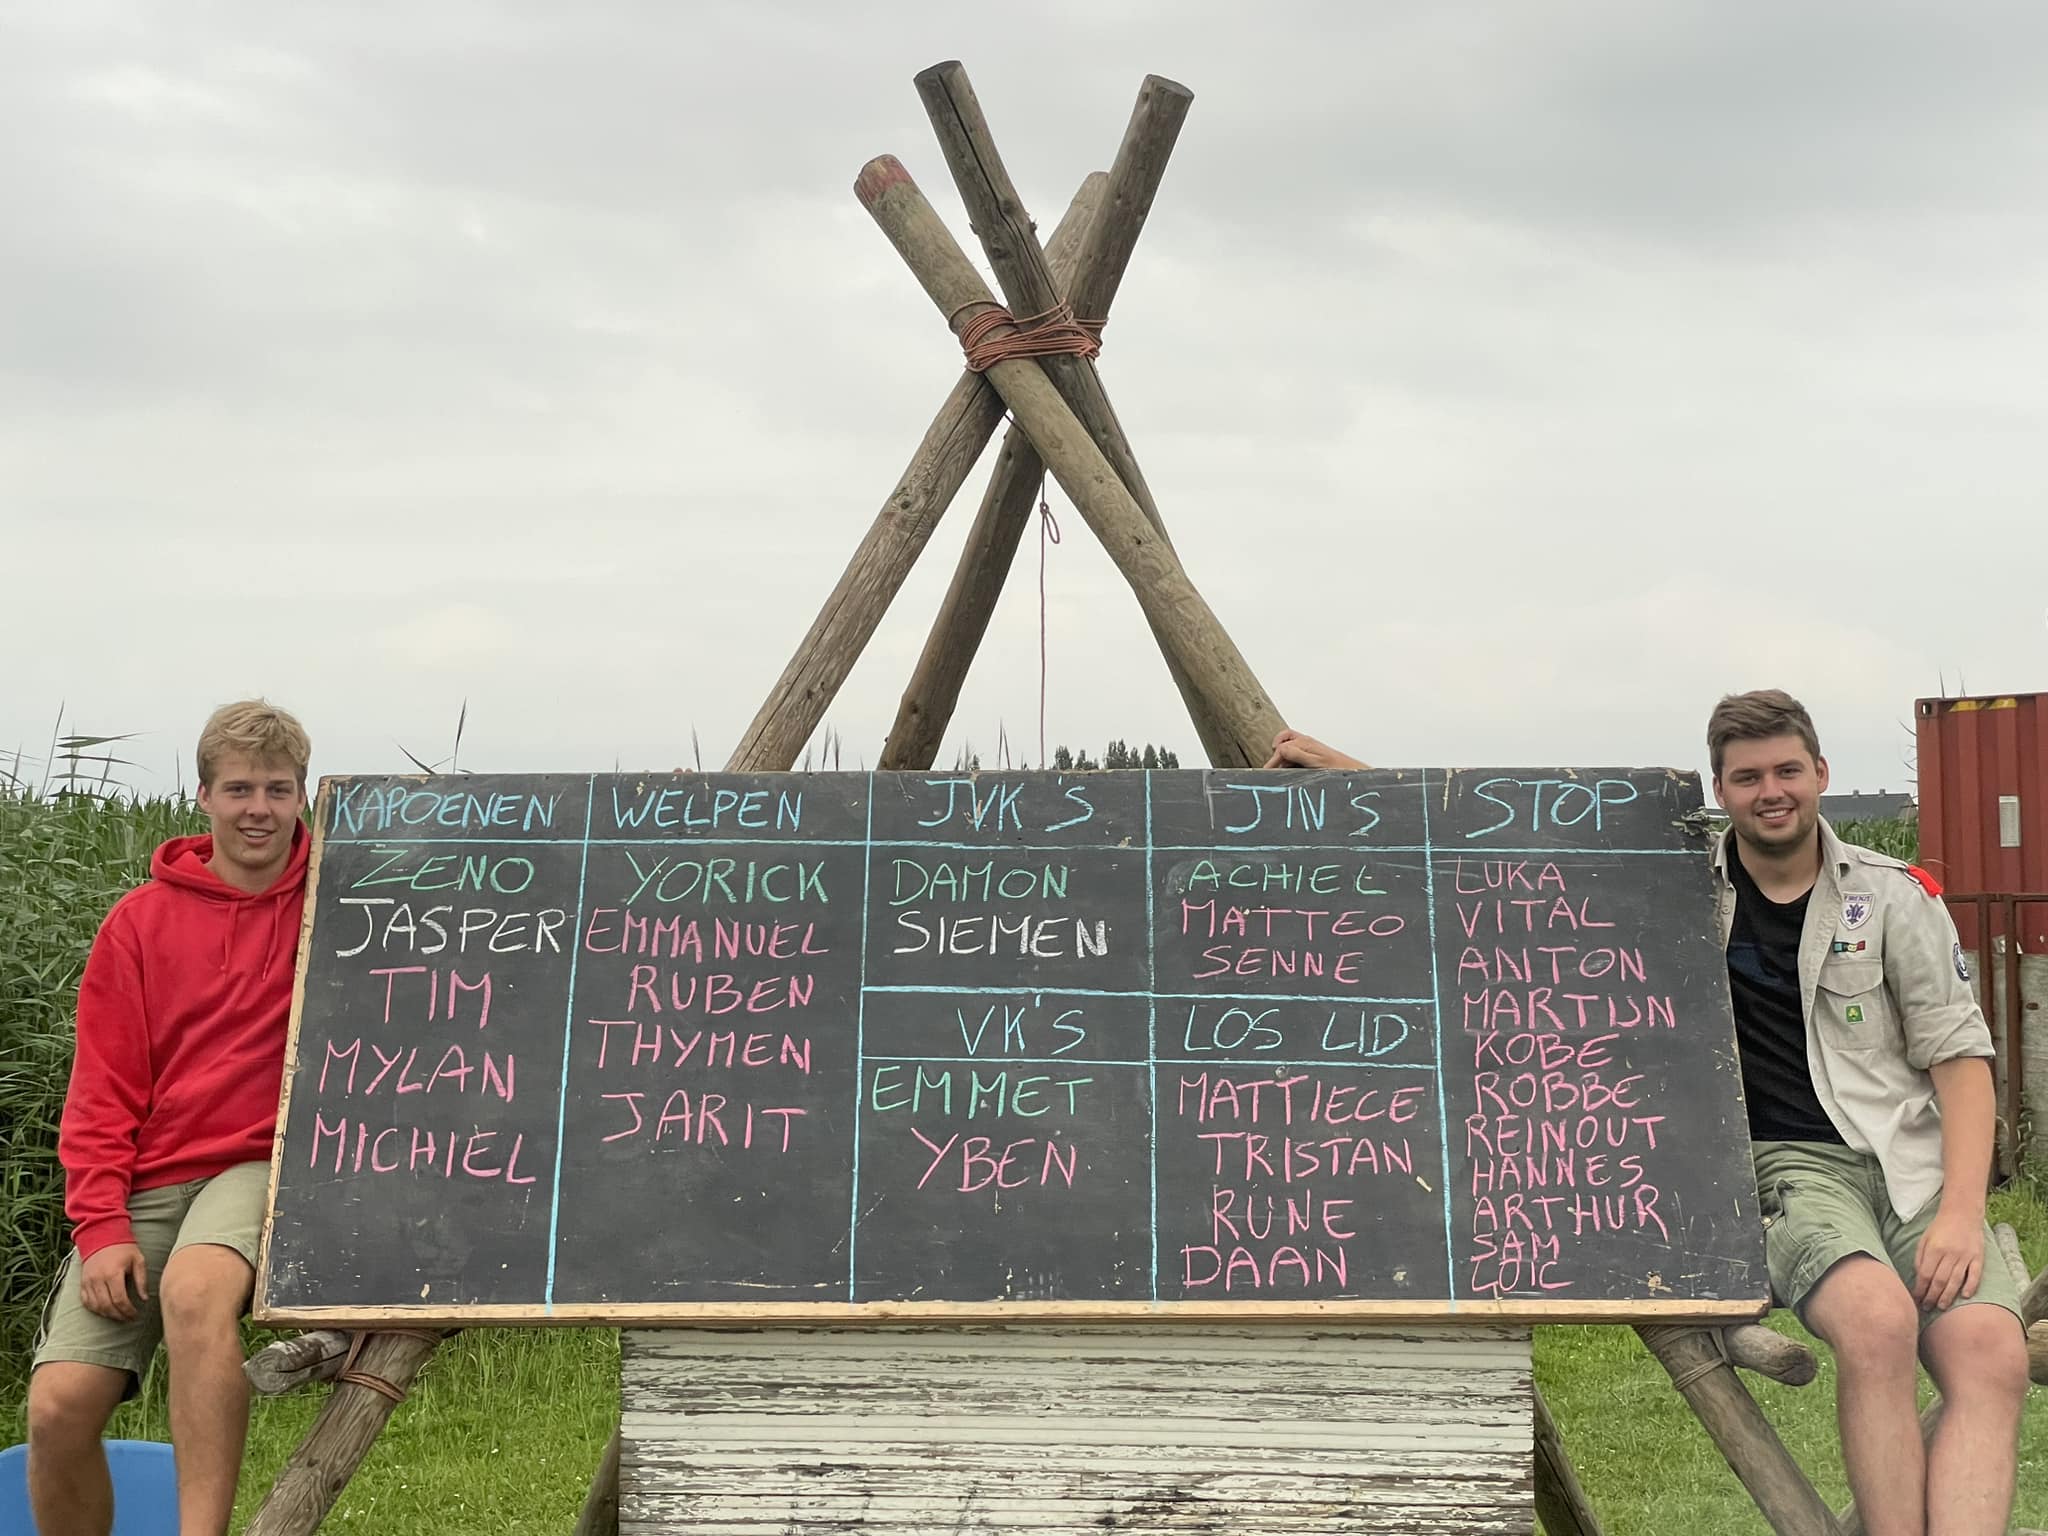 KAPOENEN
ZENO
JASPER
TIM
MYLAN
MICHIEL
WELPEN
YORICK
EMMANUEL
RUBEN
THYMEN
JARIT
JVK'S
DAMON
SIEMEN
VK'S
EMMET
YBEN
JIN'S
ACHIEL
MATTEO
SENNE
LOS LID
MATTIECE
TRISTAN
RUNE
DAAN
STOP
LUKA
VITAL
ANTON
MARTIJN
KOBE
ROBBE
REINOUT
HANNES
ARTHUR
SAM
LOIC